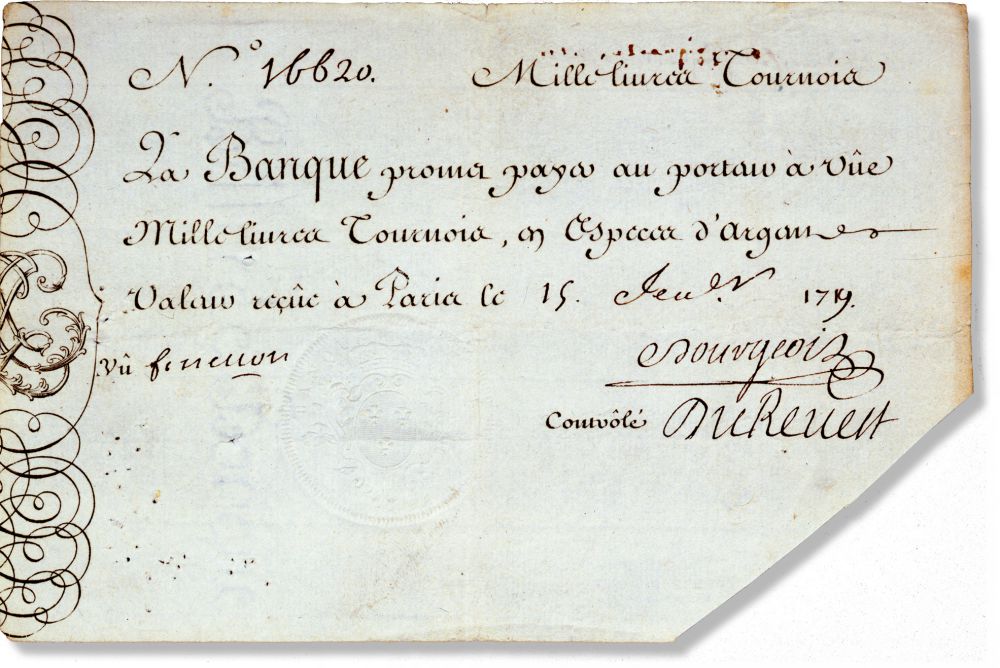 N.º 16620. Mille livres Tournois
La Banque promet payer au porteur à vûe
Mille livres Tournois, en Especes d'Argent
Valeur reçûe à Paris le 15. Jenv.r 1719.
Vû fenellon
Bourgeois
Contrôlé DuRevest